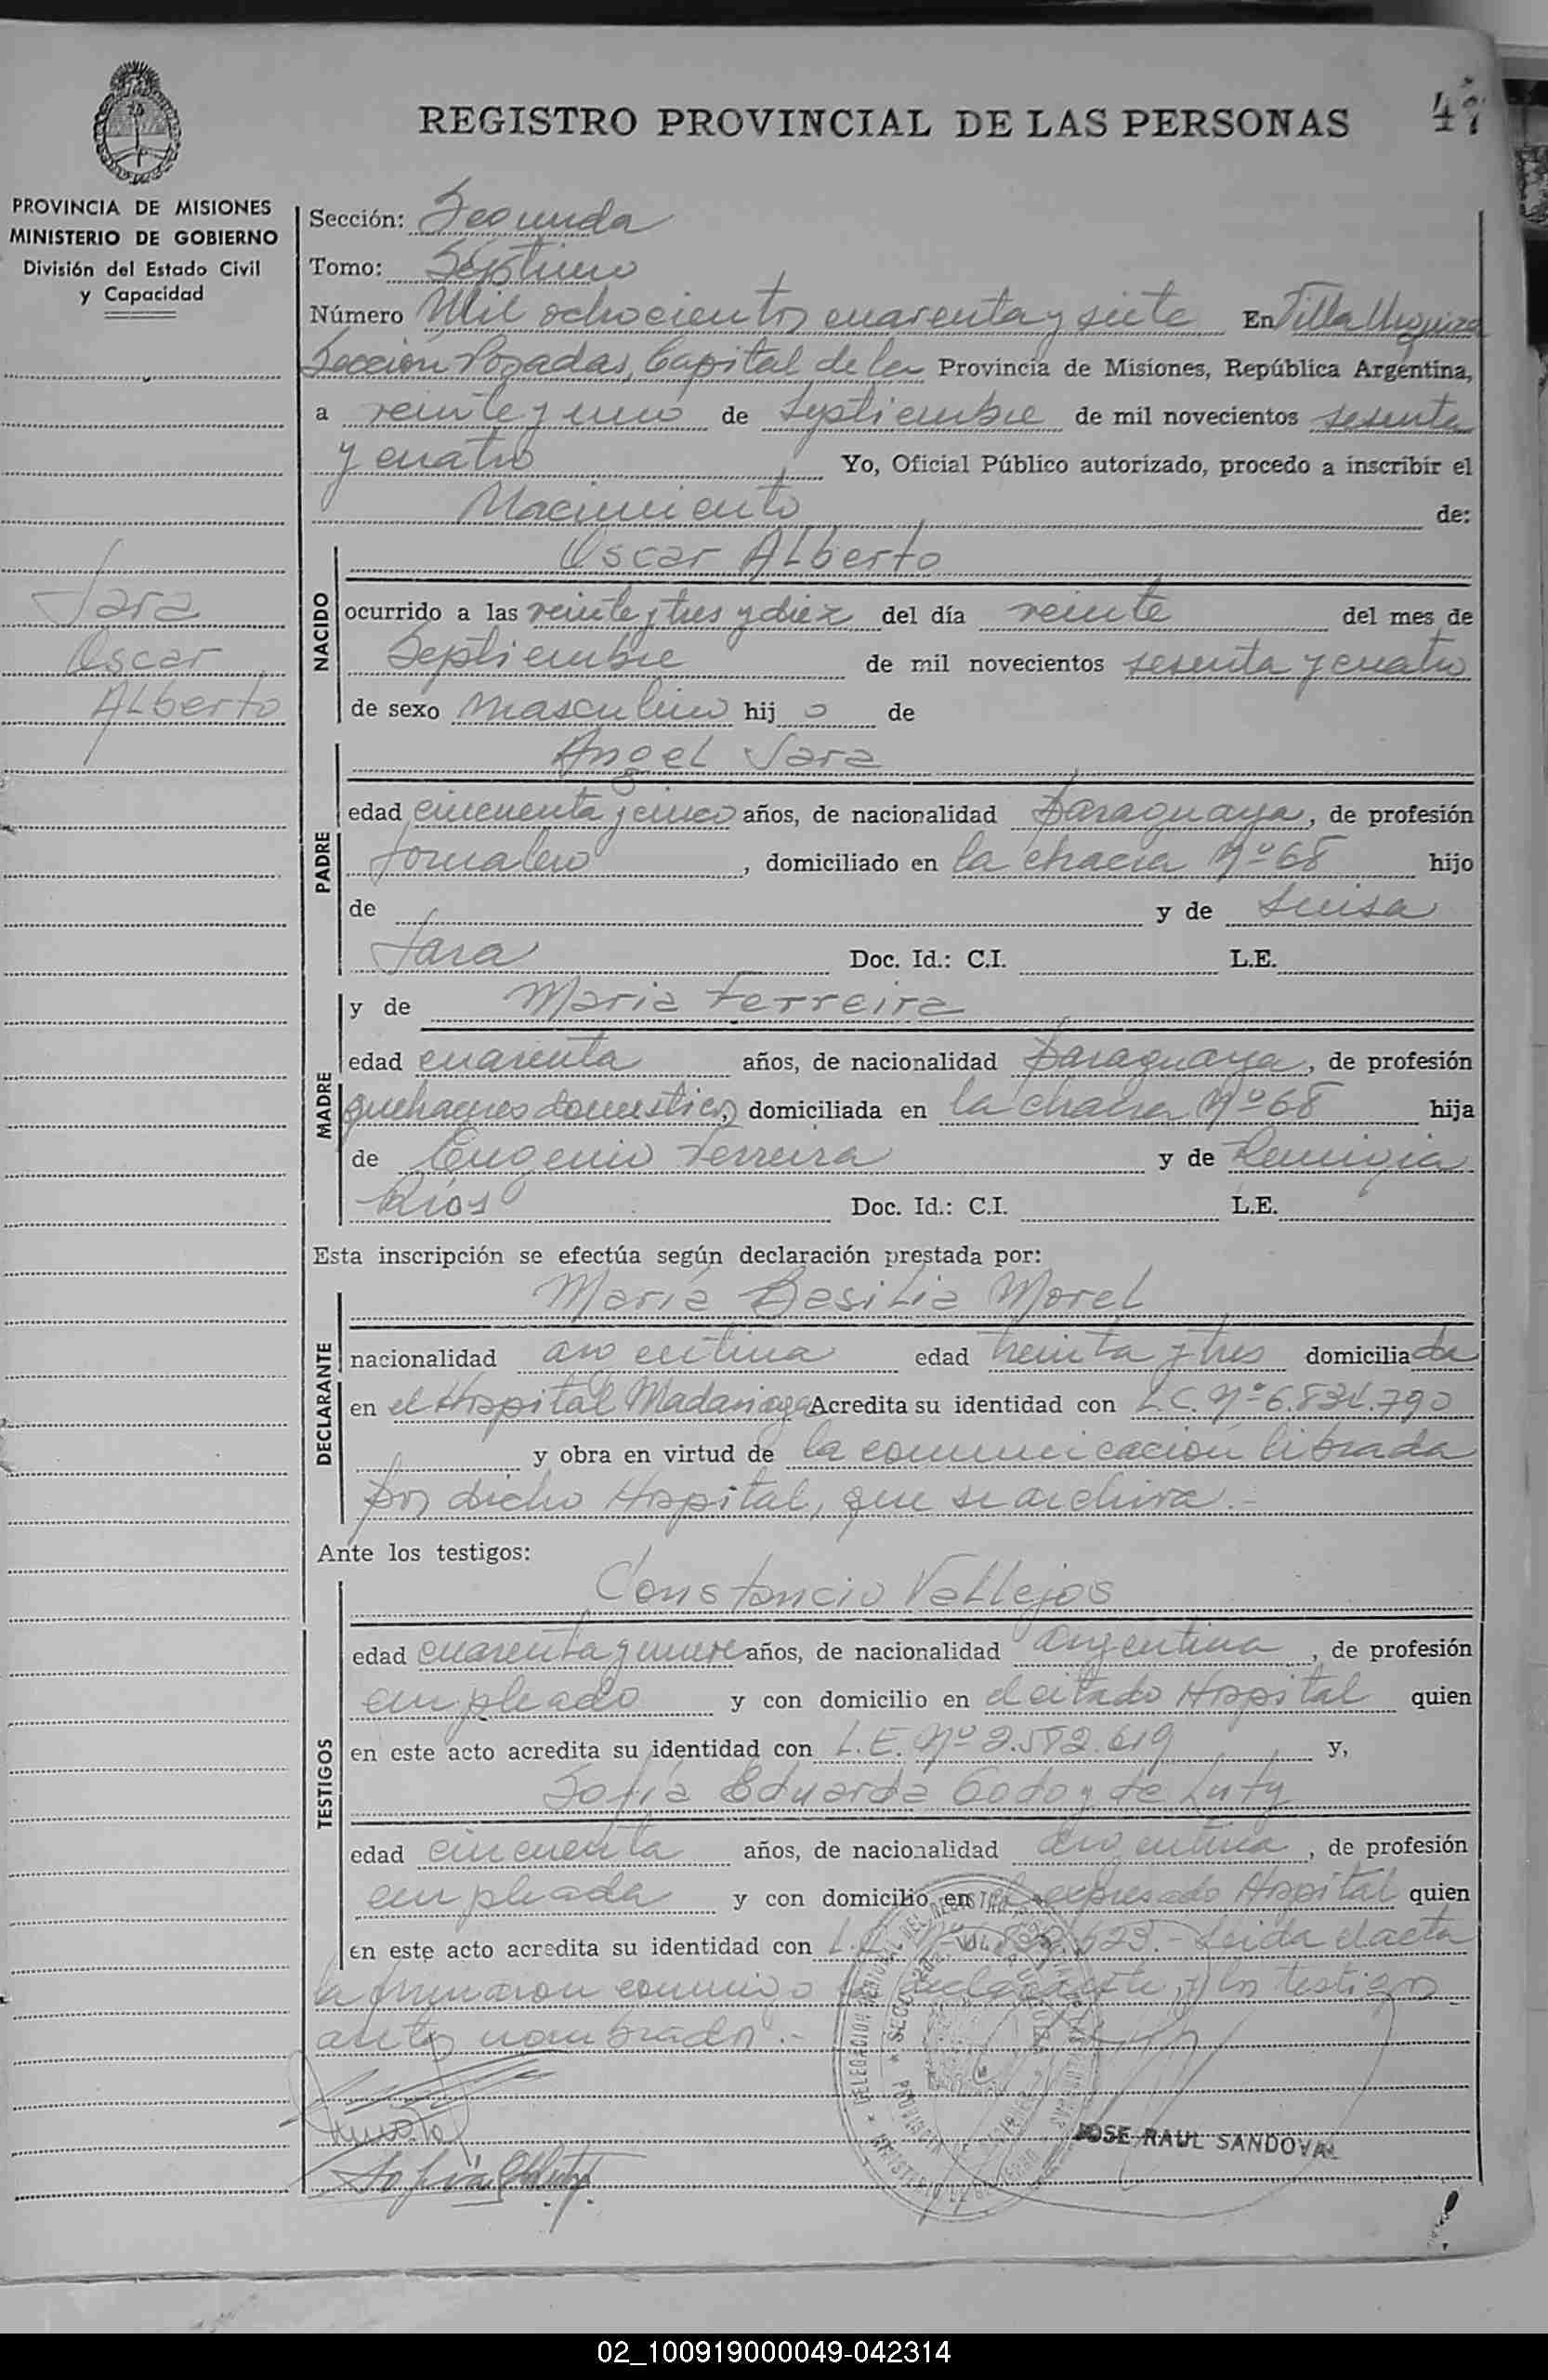 REGISTRO PROVINCIAL DE LAS PERSONAS
PROVINCIA DE MISIONES
MINISTERIO DE GOBIERNO
División del Estado Civil
y Capacidad
Sección: Segunda
Tomo: Séptimo
Número Mil ochocientos cuarenta y siete En Villa Urquiza
Sección Posadas, Capital de la Provincia de Misiones, República Argentina,
a veinte y uno de Septiembre de mil novecientos sesenta
y cuatro Yo, Oficial Público autorizado, procedo a inscribir el
Nacimiento de:
Jara
Oscar
Alberto
NACIDO
Oscar Alberto
ocurrido a las veinte y tres y diez del día veinte del mes de
Septiembre de mil novecientos sesenta y cuatro
de sexo masculino hij o de
PADRE
Angel Jara
edad cincuenta y cinco años, de nacionalidad paraguaya, de profesión
Jornalero, domiciliado en la chacra Nº 68 hijo
de y de Luisa
Jara Doc. Id.: C.I. L.E.
MADRE
y de Maria Ferreira
edad cuarenta años, de nacionalidad paraguaya, de profesión
quehaceres domesticos, domiciliada en la chacra Nº 68 hija
de Eugenio Ferreira y de Remigia
Ríos Doc. Id.: C.I. L.E.
Esta inscripción se efectúa según declaración prestada por:
DECLARANTE
María Basilia Morel
nacionalidad argentina edad treinta y tres domiciliada
en el Hospital Madariaga Acredita su identidad con L.C. Nº 6.831.790
y obra en virtud de la comunicación librada
por dicho Hospital, que se archiva.-
Ante los testigos:
TESTIGOS
Constancio Vallejos
edad cuarenta y nueve años, de nacionalidad argentina, de profesión
empleado y con domicilio en el citado Hospital quien
en este acto acredita su identidad con L.E. Nº 2.582.619 y,
Sofía Eduarda Godoy de Luty
edad cincuenta años, de nacionalidad argentina, de profesión
empleada y con domicilio en el expresado Hospital quien
en este acto acredita su identidad con L.C. .- Leida el acta
la firmaron conmigo la declarante, y los testigos
antes nombrados.-
JOSE RAUL SANDOVAL
02_100919000049-042314